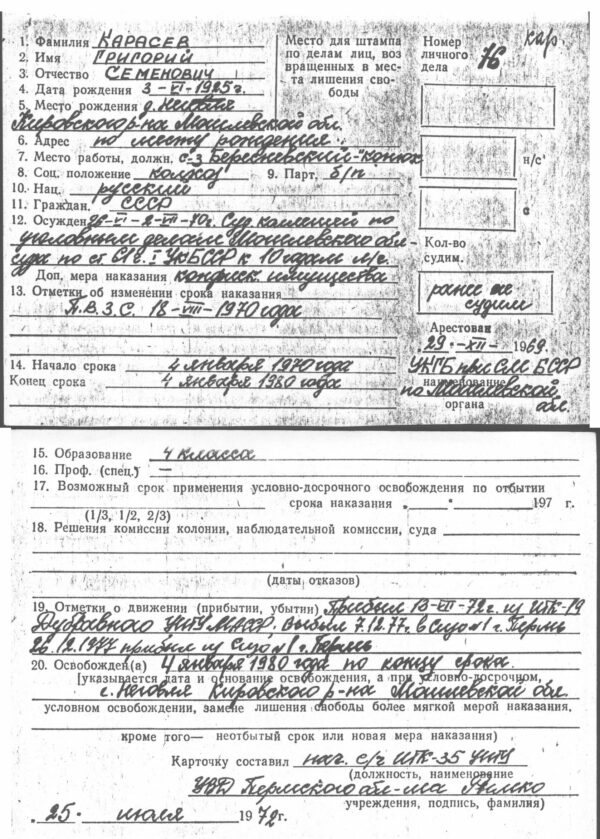 кар
1. Фамилия КАРАСЕВ
2. Имя ГРИГОРИЙ
3. Отчество СЕМЕНОВИЧ
4. Дата рождения 3-VI-1925г.
5. Место рождения д.
Кировского р-на Могилевской обл.
6. Адрес по месту рождения
7. Место работы, должн. с-з Березневский-"конюх
8. Соц. положение колхоз 9. Парт. б/п
10. Нац. русский
11. Граждан. СССР
12. Осужден 26-VI-2-VII-70г. Суд коллегией по
уголовным делам Могилевского обл-
суда по ст 61 ч. I УКБССР к 10 годам л/с.
Доп. мера наказания конфиск. имущества
13. Отметки об изменении срока наказания
П.В.З.С. 18-VIII-1970 года
14. Начало срока 4 января 1970 года
Конец срока 4 января 1980 года
Место для штампа
по делам лиц, воз
вращенных в мес-
та лишения сво-
боды
Номер
личного
дела 76
н/с
с
Кол-во
судим.
ранее не
судим
Арестован
29.-XII- 1969.
УКГБ при СМ БССР
наименование
по Могилевской
органа обл.
15. Образование 4 класса
16. Проф. (спец.) —
17. Возможный срок применения условно-досрочного освобождения по отбытии
срока наказания „ “ 197 г.
(1/3, 1/2, 2/3)
18. Решения комиссии колонии, наблюдательной комиссии, суда
(даты отказов)
19. Отметки о движении (прибытии, убытии) Прибыл 13-VII-72г. из ИТК-19
Дубравного УИТУ МАССР. Выбыл 7.12.77. в Сизо №1 г. Пермь
26.12.1977 прибыл из Сизо №1 г. Пермь
20. Освобожден(а) 4 января 1980 года по концу срока.
[указывается дата и основание освобождения, а при условно-досрочном,
с. Неговля Кировского р-на Могилевской обл.
условном освобождении, замене лишения свободы более мягкой мерой наказания,
кроме того— неотбытый срок или новая мера наказания)
Карточку составил нач. с/ч ИТК-35 УИТУ
(должность, наименование
УВД Пермского обл-ма
учреждения, подпись, фамилия)
„25“ июля 1972 г.